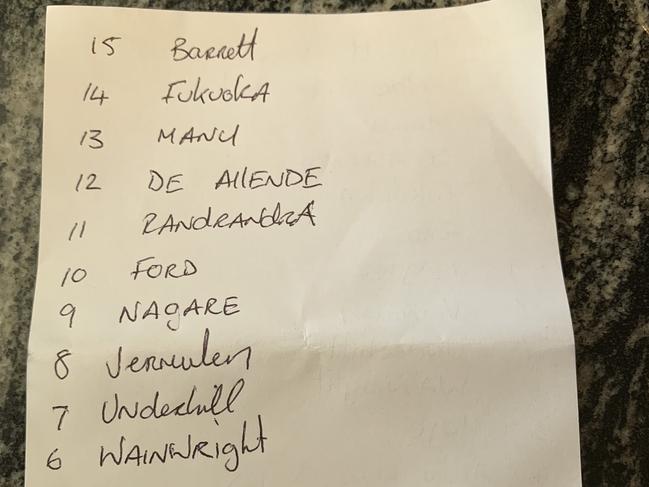 15 Barrett
14 FUKUOKA
13 MANU
12 DE AllENDE
11 RANDRANDRA
10 FORD
9 NAGARE
8 Vermulen
7 UNDERhill
6 WAINWRIGht